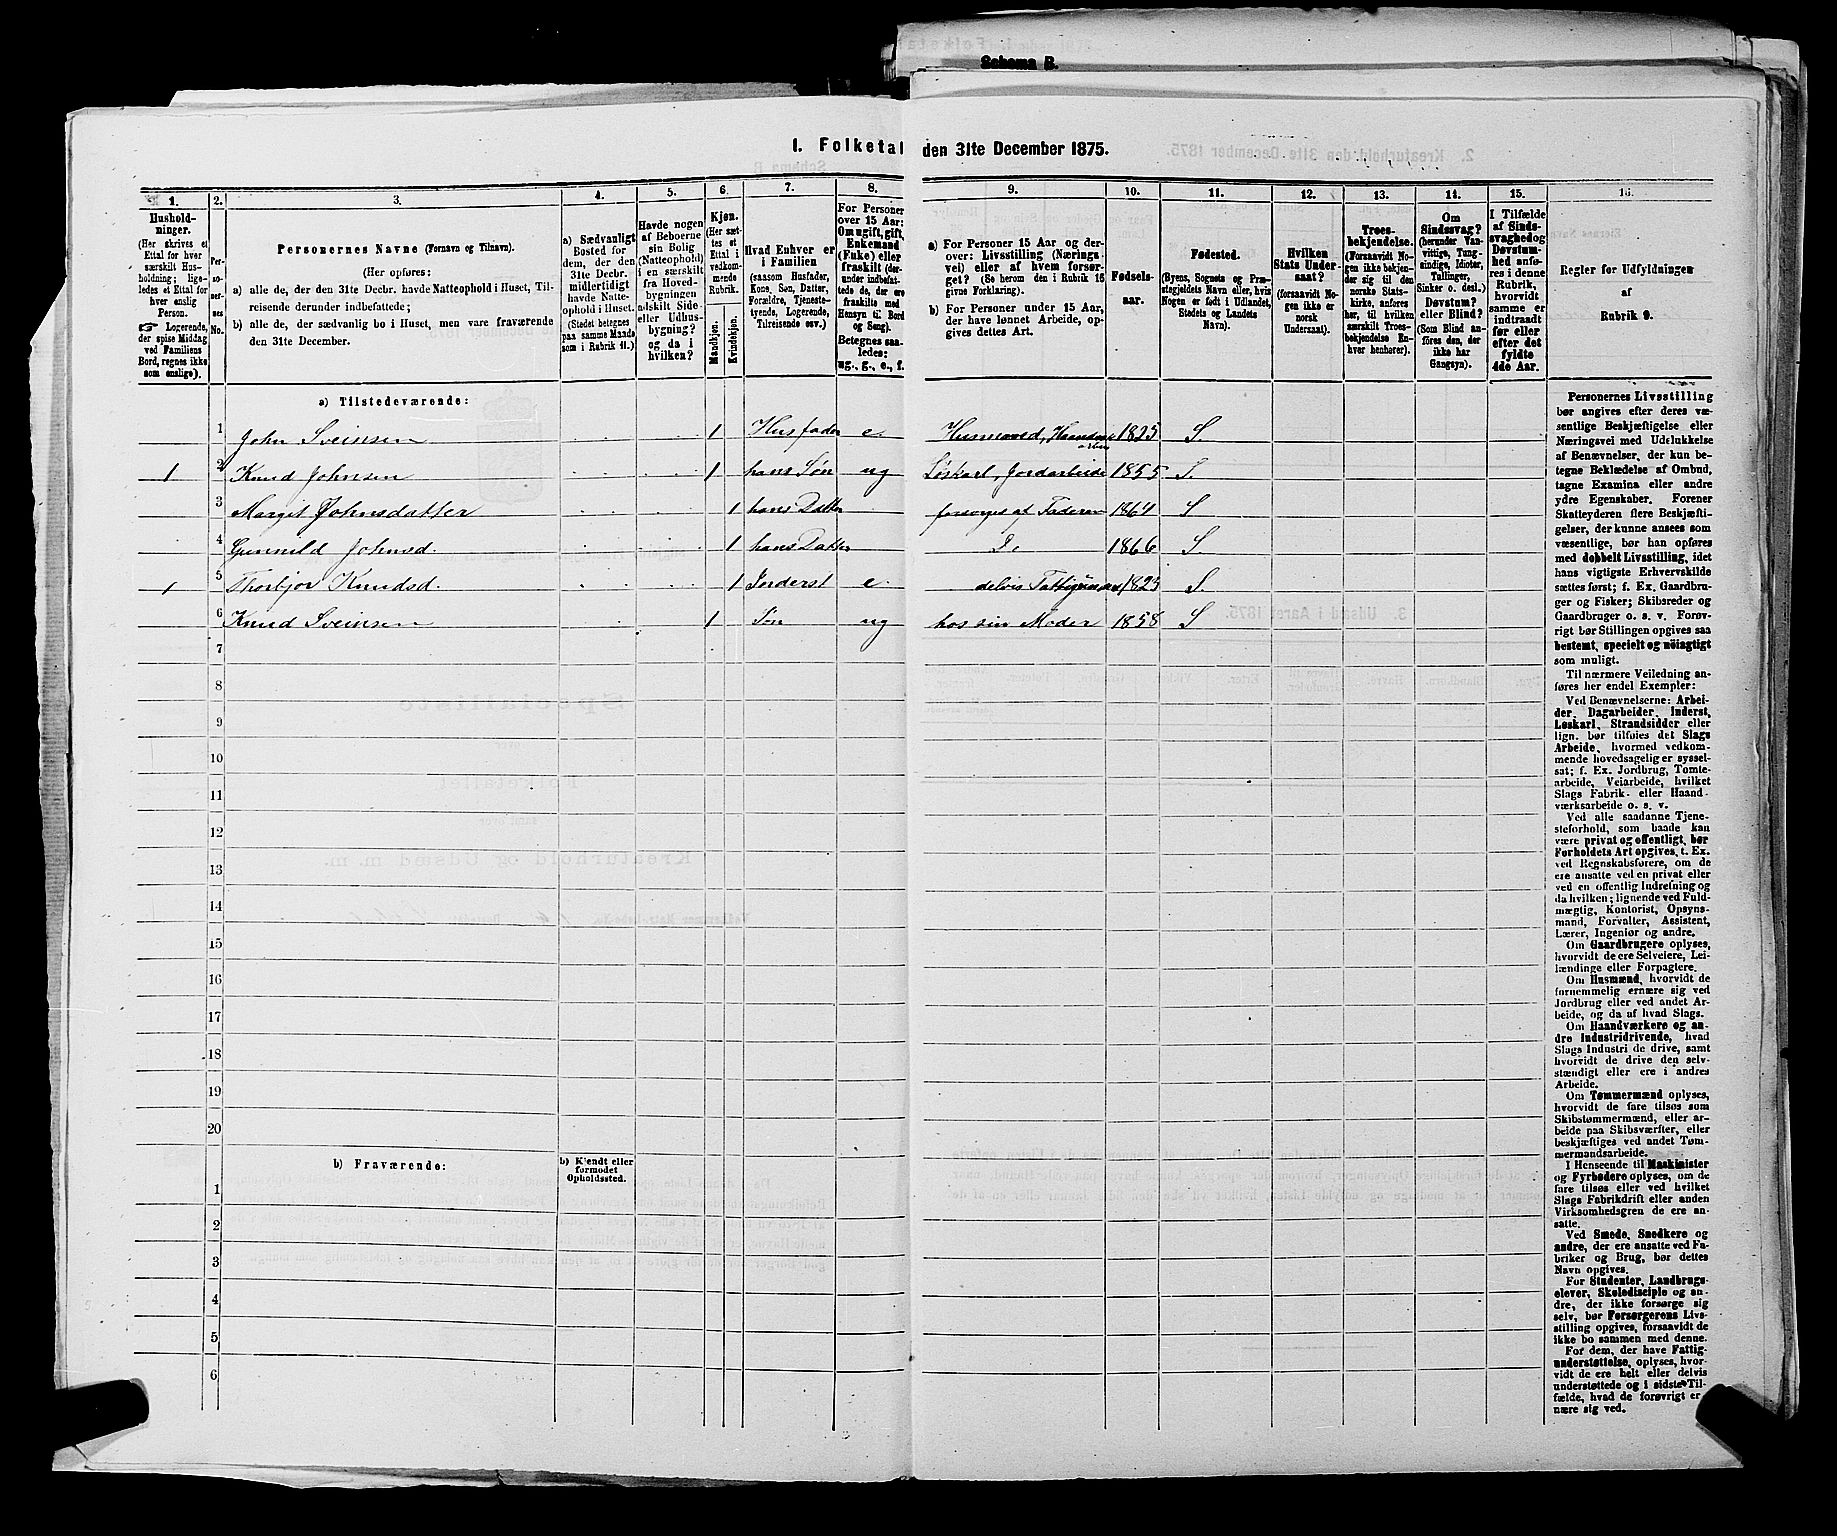 Schema B.
I. Folketal den 31te December 1875.
1. 2. 3. 4. 5. 6. 7. 8. 9. 10. 11. 12. 13. 14. 15. 16.
Hushold-
ninger.
(Her skrives et
Ettal for hver
særskilt Hus-
holdning; lige-
ledes et Ettal for
hver enslig
Person.
Logerende,
der spise Middag
ved Familiens
Bord, regnes ikke
som enslige).
Per-
so-
ner-
nes
No.
Personernes Navne (Fornavn og Tilnavn).
(Her opføres:
a) alle de, der den 31te Decbr. havde Natteophold i Huset, Til-
reisende derunder indbefattede;
b) alle de, der sædvanlig bo i Huset, men vare fraværende
den 31te December.
a) Sædvanligt
Bosted for
dem, der den
31te Decbr.
midlertidigt
havde Natte-
ophold i Huset.
(Stedet betegnes
paa samme Maade
som i Rubrik 11.)
Havde nogen
af Beboerne
sin Bolig
(Natteophold)
i en særskilt
fra Hoved-
bygningen
adskilt Side
eller Udhus-
bygning?
og da i
hvilken?
Kjøn.
(Her sæt-
tes et
Ettal i
vedkom-
mende
Rubrik.
Mandkjøn.
Kvindekjøn.
Hvad Enhver er
i Familien
(saasom Husfader,
Kone, Søn, Datter,
Forældre, Tjeneste-
tyende, Logerende,
Tilreisende osv.)
For Personer
over 15 Aar:
Om ugift, gift,
Enkemand
(Enke) eller
fraskilt (der-
under indbefat-
tede de, der ere
fraskilte med
Hensyn til Bord
og Seng).
Betegnes saa-
ledes:
ug., g., e., f.
a) For Personer 15 Aar og der-
over: Livsstilling (Nærings-
vei) eller af hvem forsør-
get? (Se herom den i Rubrik 16
givne Forklaring).
b) For Personer under 15 Aar,
der have lønnet Arbeide, op-
gives dettes Art.
Fødsels-
aar.
Fødested.
(Byens, Sognets og Præ-
stegjeldets Navn eller, hvis
Nogen er født i Udlandet,
Stedets og Landets
Navn).
Hvilken
Stats Under-
saat?
(forsaavidt No-
gen ikke er
norsk
Undersaat).
Troes-
bekjendelse.
(Forsaavidt No-
gen ikke bekjen-
der sig til den
norske Stats-
kirke, anføres
her, til hvilken
særskilt Troes-
bekjendelse En-
hver henhører).
Om
Sindssvag?
(herunder Van-
vittige, Tung-
sindige, Idioter,
Tullinger,
Sinker o. desl.)
Døvstum?
eller Blind?
(Som Blind an-
føres den, der
ikke har
Gangsyn).
I Tilfælde
af Sinds-
svaghed og
Døvstum-
hed anfø-
res i denne
Rubrik,
hvorvidt
samme er
indtraadt
før eller
efter det
fyldte
4de Aar.
Regler for Udfyldningen
af
Rubrik 9.
a) Tilstedeværende:
1 John Sveinsen 1 Husfader e. 1825 S.
1 2 Knud Johnsen 1 hans Søn ug Løskarl, Jordarbeide 1855 S.
3 Margit Johnsdatter 1 hans Datter forsørges af Faderen 1864 S
4 Gunnild Johnsd. 1 hans Datter D. 1866 S.
1 5 Thorbjør Knudsd. 1 Inderst e. 1823 S.
6 Knud Sveinsen 1 Søn ug hos sin Moder 1858 S
7
8
9
10
11
12
13
14
15
16
17
18
19
20
b) Fraværende:
b) Kjendt eller
formodet
Opholdssted.
1
2
3
4
5
6
Personernes Livsstilling
bør angives efter deres væ-
sentlige Beskjæftigelse eller
Næringsvei med Udelukkelse
af Benævnelser, der kun be-
tegne Beklædelse af Ombud,
tagne Examina eller andre
ydre Egenskaber. Forener
Skatteyderen flere Beskjæfti-
gelser, der kunne ansees som
væsentlige, bør han opføres
med dobbelt Livsstilling, idet
hans vigtigste Erhvervskilde
sættes først; f. Ex. Gaardbru-
ger og Fisker; Skibsreder og
Gaardbruger o. s. v. Forøv-
rigt bør Stillingen opgives saa
bestemt, specielt og nøiagtigt
som muligt.
Til nærmere Veiledning an-
føres her endel Exempler:
Ved Benævnelserne: Arbei-
der, Dagarbeider, Inderst,
Løskarl, Strandsidder eller
lign. bør tilføies det Slags
Arbeide, hvormed vedkom-
mende hovedsagelig er syssel-
sat; f. Ex. Jordbrug, Tomte-
arbeide, Veiarbeide, hvilket
Slags Fabrik- eller Haand-
værksarbeide o. s. v.
Ved alle saadanne Tjene-
steforhold, som baade kan
være privat og offentligt, bør
Forholdets Art opgives, t. Ex.
ved Regnskabsførere, om de
ere ansatte ved en privat eller
ved en offentlig Indretning og
da hvilken; lignende ved Fuld-
mægtig, Kontorist, Opsyns-
mand, Forvalter, Assistent,
Lærer, Ingeniør og andre.
Om Gaardbrugere oplyses,
hvorvidt de ere Selveiere, Lei-
lændinge eller Forpagtere.
Om Husmænd, hvorvidt de
fornemmelig ernære sig ved
Jordbrug eller ved andet Ar-
beide, og da af hvad Slags.
Om Haandværkere og an-
dre Industridrivende, hvad
Slags Industri de drive, samt
hvorvidt de drive den selv-
stændigt eller ere i andres
Arbeide.
Om Tømmermænd oplyses,
hvorvidt de fare tilsøs som
Skibstømmermænd, eller ar-
beide paa Skibsværfter, eller
beskjæftiges ved andet Tøm-
mermandsarbeide.
I Henseende til Maskinister
og Fyrbødere oplyses, om de
fare tilsøs eller ved hvilket
Slags Fabrikdrift eller anden
Virksomhedsgren de ere an-
satte.
Ved Smede, Snedkere og
andre, der ere ansatte ved Fa-
briker og Brug, bør dettes
Navn opgives.
For Studenter, Landbrugs-
elever, Skoledisciple og an-
dre, der ikke forsørge sig
selv, bør Forsørgerens Livs-
stilling opgives, forsaavidt de
ikke bo sammen med denne.
For dem, der have Fattig-
understøttelse, oplyses, hvor-
vidt de ere helt eller delvis
understøttede og i sidste Til-
fælde, hvad de forøvrigt er-
nære sig ved.